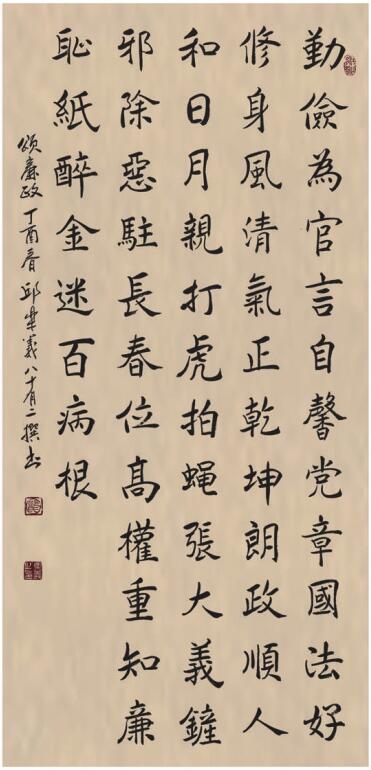 勤儉為官言自馨党章國法好
修身風清氣正乾坤朗政順人
和日月親打虎拍蝇張大義鏟
邪除惡駐長春位高權重知廉
恥紙醉金迷百病根
頌廉政丁酉春邱華義八十有二撰书